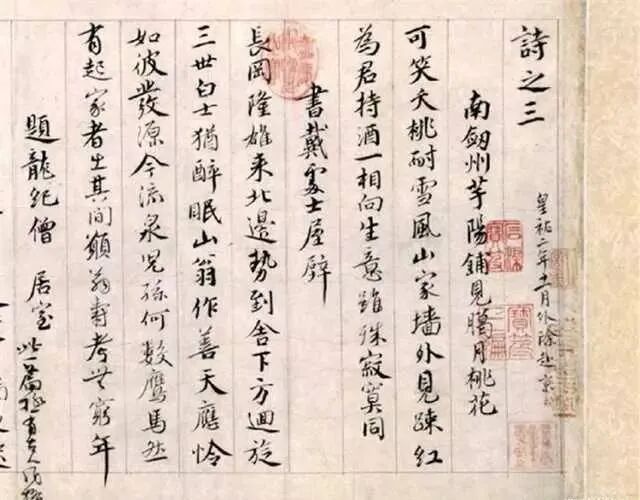 詩之三
皇祐二年十一月外除赴京
南劔州芋陽鋪見臈月桃花
可笑夭桃耐雪風山家墻外見疎紅
為君持酒一相向生意雖殊寂寞同
書戴處士屋壁
長岡隆雄来北邊勢到舍下方迴旋
三世白士猶醉眠山翁作善天應憐
如彼發源今流泉児孫何數鷹馬然
有起家者出其間願翁壽考无窮年
題龍紀僧居室
此一篇極有古人風格